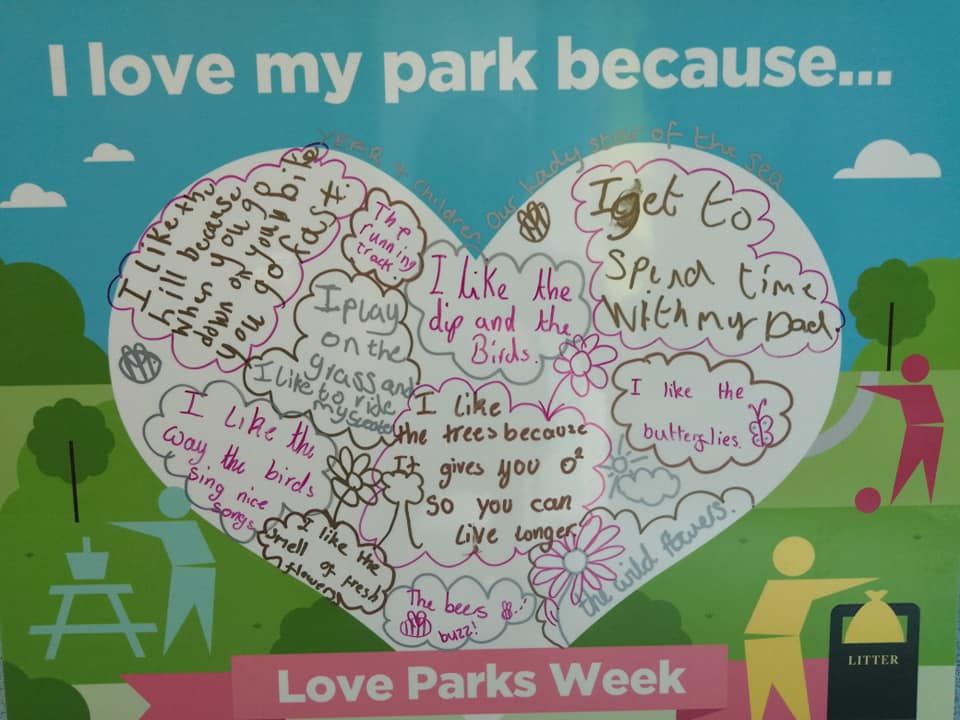 I love my park because...
Year 4 children Our Lady star of the sea
I like the
hill because
when you go
down on your bike
you go fast!
The
running
track.
I like the
dip and the
Birds.
I get to
Spend time
With my Dad.
I play
on the
grass and
I like to ride
my scooter
I like the
butterflies.
I like
the trees because
It gives you O²
So you can
Live longer
I like the
way the birds
sing nice
songs
I like the
smell of fresh
flowers
The bees
buzz!
the wild flowers.
LITTER
Love Parks Week